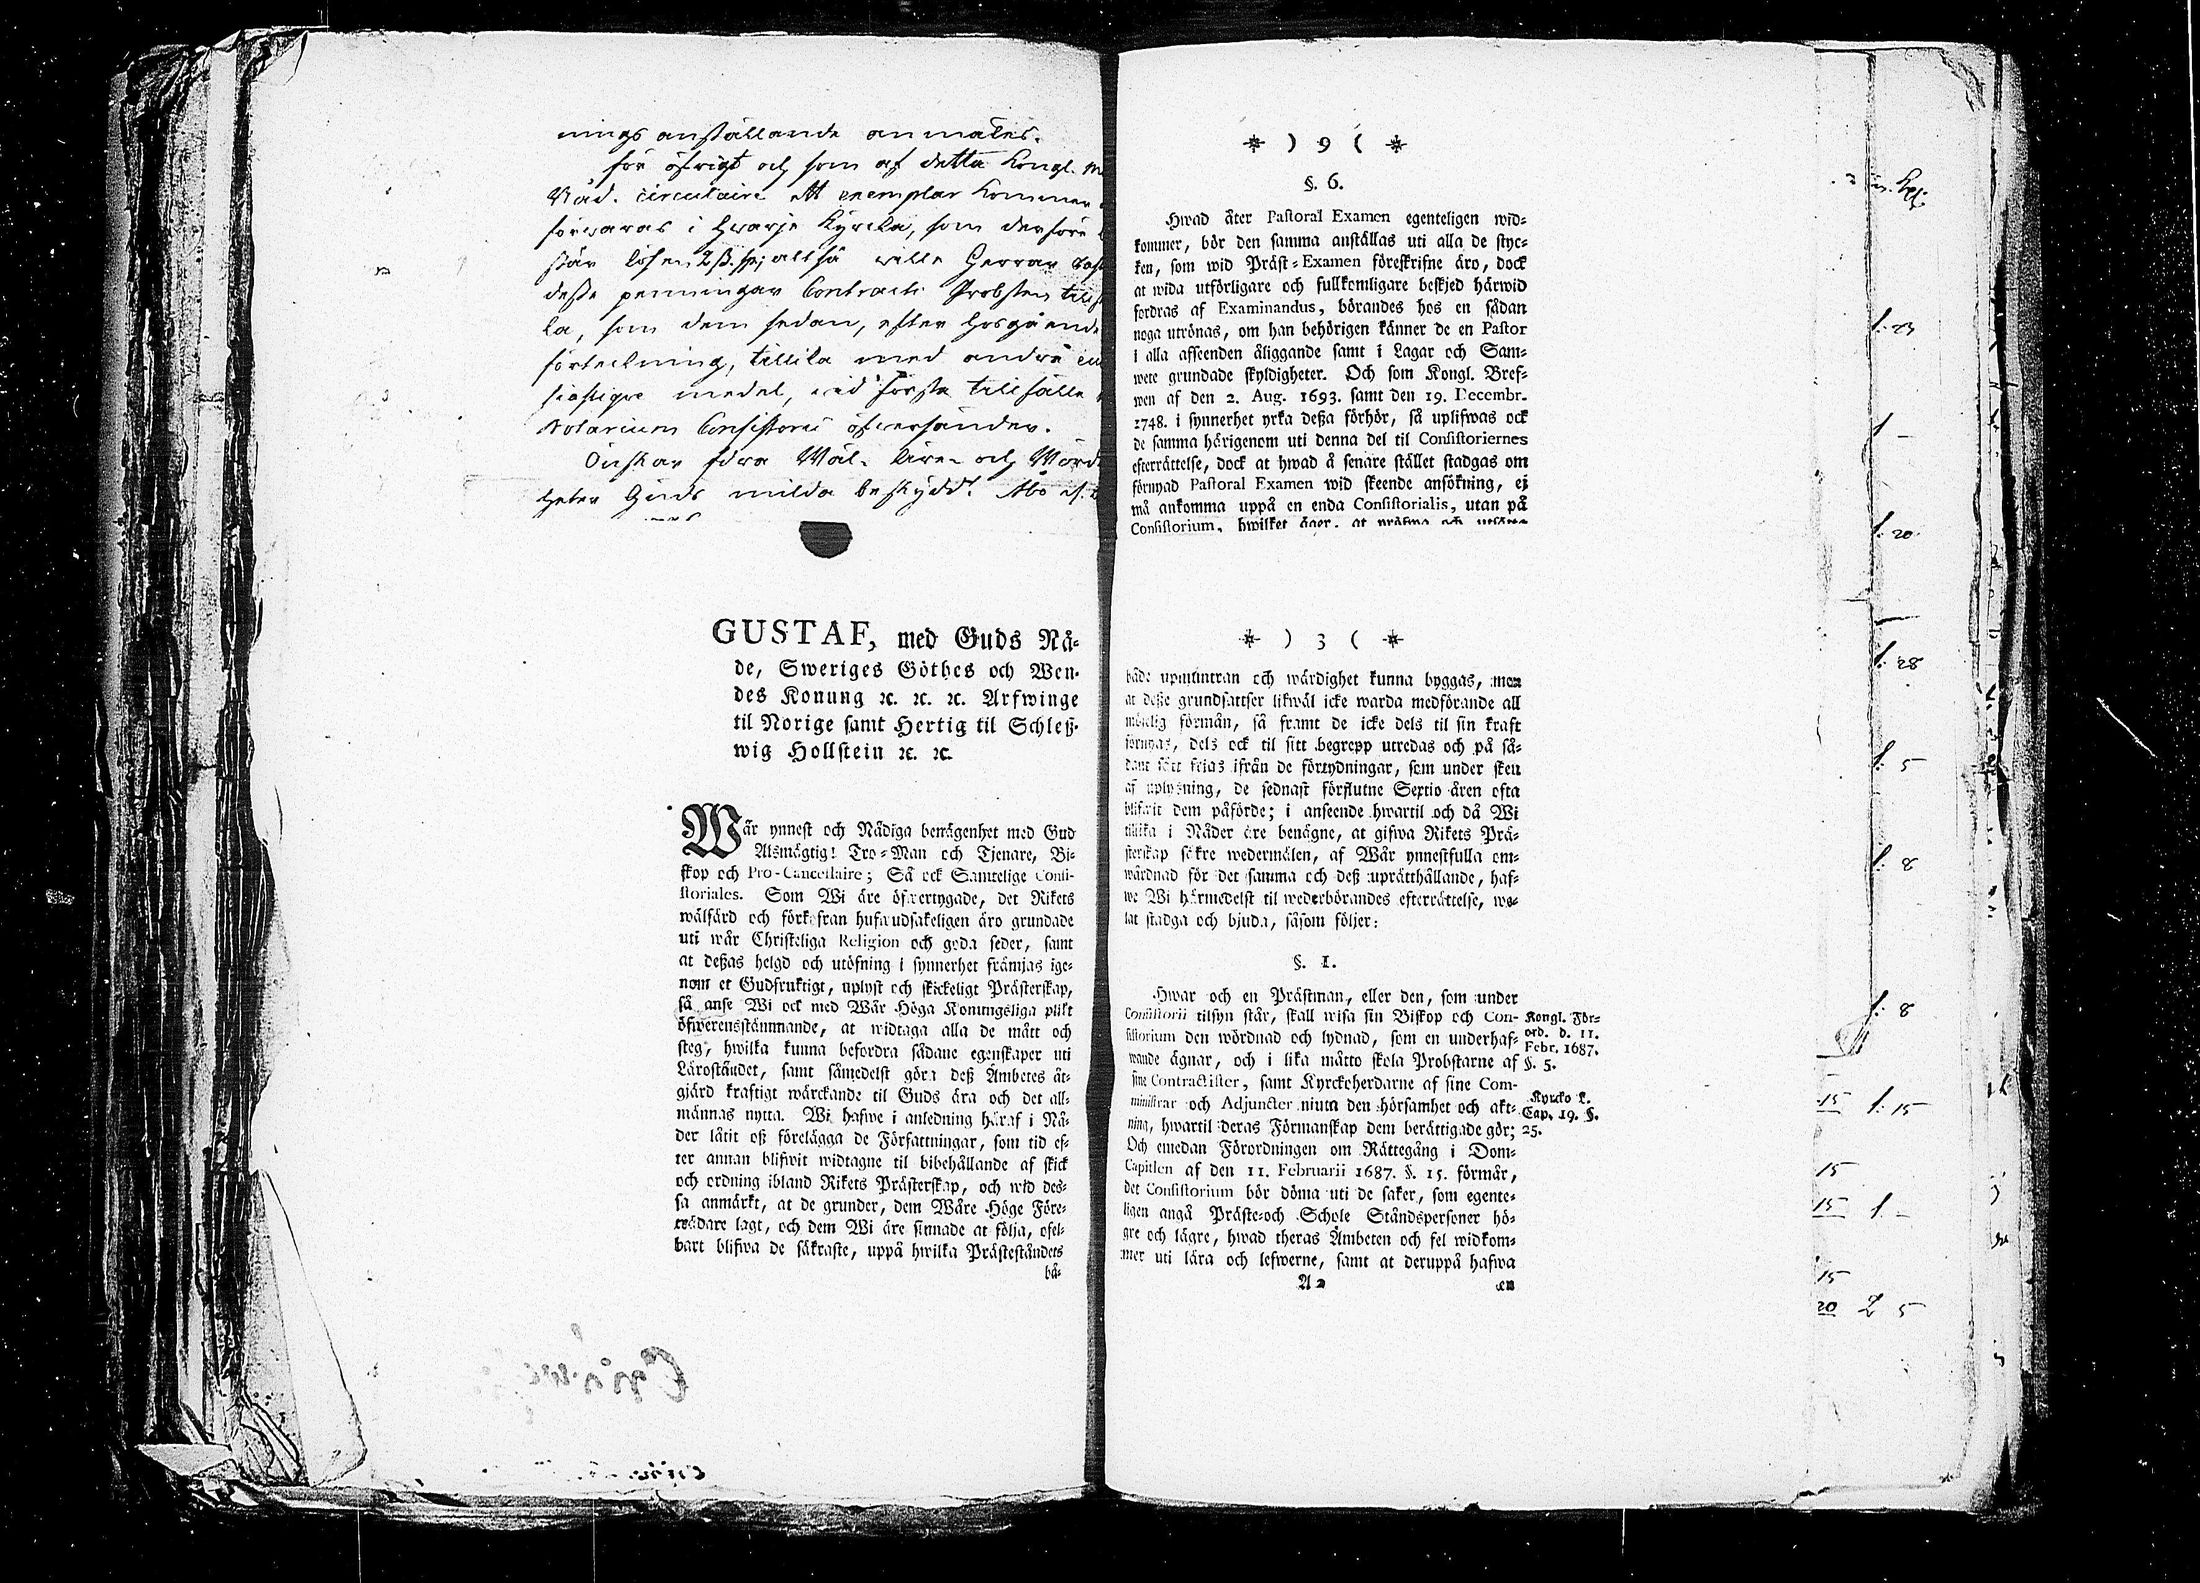 nings anställande anmäles.
för öfrigt och som af detta Kongl. M
Nåd. circulaire ett exemplar kommer
förwaras i hwarje Kyrcka, som derföre
står lösen 2 ß. sp; altså wille Herrar
desse penningar Contracts Probsten till
la, som dem sedan, efter hosgående
förteckning, tillika med andra
medel, wid första tillfälle
Notarium Consistorii öfwersänder.
Önskar edra Wäl- Äre- och Wörd
heter Guds milda beskydd! Åbo
GUSTAF, med Guds Nå-
de, Sweriges Göthes och Wen-
des Konung ꝛc. ꝛc. ꝛc. Arfwinge
til Norige samt Hertig til Schleß-
wig Hollstein ꝛc. ꝛc.
Wår ynnest och Nådiga benägenhet med Gud
Alsmägtig! Tro-Man och Tjenare, Bi-
skop och Pro-Cancellaire; Så ock Samtelige Consi-
storiales. Som Wi äre öfwertygade, det Rikets
wälfärd och förkofran hufwudsakeligen äro grundade
uti wår Christeliga Religion och goda seder, samt
at deßas helgd och utöfning i synnerhet främjas ige-
nom et Gudfruktigt, uplyst och skickeligt Prästerskap,
så anse Wi ock med Wår Höga Konungsliga plikt
öfwerensstämmande, at widtaga alla de mått och
steg, hwilka kunna befordra sådane egenskaper uti
Läroståndet, samt såmedelst göra deß Ämbetes åt-
gjärd kraftigt wärckande til Guds ära och det all-
männas nytta. Wi hafwe i anledning häraf i Nå-
der låtit oß förelägga de Författningar, som tid ef-
ter annan blifwit widtagne til bibehållande af skick
och ordning ibland Rikets Prästerskap, och wid des-
sa anmärkt, at de grunder, dem Wåre Höge Före-
trädare lagt, och dem Wi äre sinnade at följa, ofel-
bart blifwa de säkraste, uppå hwilka Prästeståndets
bå-
* ) 9 ( *
§. 6.
Hwad åter Pastoral Examen egenteligen wid-
kommer, bör den samma anställas uti alla de styc-
ken, som wid Präst-Examen föreskrifne äro, dock
at wida utförligare och fullkomligare beskjed härwid
fordras af Examinandus, börandes hos en sådan
noga utrönas, om han behörigen känner de en Pastor
i alla afseenden åliggande samt i Lagar och Sam-
wete grundade skyldigheter. Och som Kongl. Bref-
wen af den 2. Aug. 1693. samt den 19. Decembr.
1748. i synnerhet yrka deßa förhör, så uplifwas ock
de samma härigenom uti denna del til Consistoriernes
efterrättelse, dock at hwad å senare stället stadgas om
förnyad Pastoral Examen wid skeende ansökning, ej
må ankomma uppå en enda Consistorialis, utan på
Consistorium, hwilket äger, at pröfwa och
* ) 3 ( *
både upmuntran och wärdighet kunna byggas, men
at deße grundsattser likwäl icke warda medförande all
möjelig förmån, så framt de icke dels til sin kraft
förnyas, dels ock til sitt begrepp utredas och på så-
dant sätt frias ifrån de förtydningar, som under sken
af uplysning, de sednast förflutne Sextio åren ofta
blifwit dem påförde; i anseende hwartil och då Wi
tillika i Nåder äre benägne, at gifwa Rikets Prä-
sterskap säkre wedermälen, af Wår ynnestfulla om-
wårdnad för det samma och deß uprätthållande, haf-
we Wi härmedelst til wederbörandes efterrättelse, we-
lat stadga och bjuda, såsom följer:
§. 1.
Hwar och en Prästman, eller den, som under
Consistorii tilsyn står, skall wisa sin Biskop och Con-
sistorium den wördnad och lydnad, som en underhaf-
wande ägnar, och i lika måtto skola Probstarne af
sine Contractister, samt Kyrckoherdarne af sine Com-
ministrar och Adjuncter niuta den hörsamhet och akt-
ning, hwartil deras Förmanskap dem berättigade gör;
Och emedan Förordningen om Rättegång i Dom-
Capitlen af den 11. Februarii 1687. §. 15. förmår,
det Consistorium bör döma uti de saker, som egente-
ligen angå Präste-och Schole Ståndspersoner hö-
gre och lägre, hwad theras Ämbeten och fel widkom-
mer uti lära och lefwerne, samt at deruppå hafwa
A 2 en
Kongl. För-
ord. d. 11.
Febr. 1687.
§. 5.
Kyrcko L.
Cap. 19. §.
25.
1: 23
1 –
1: 20
1: 28
1: 5
1: 8
1: 8
15 1: 15
15
15 1 –
15
20 2 5